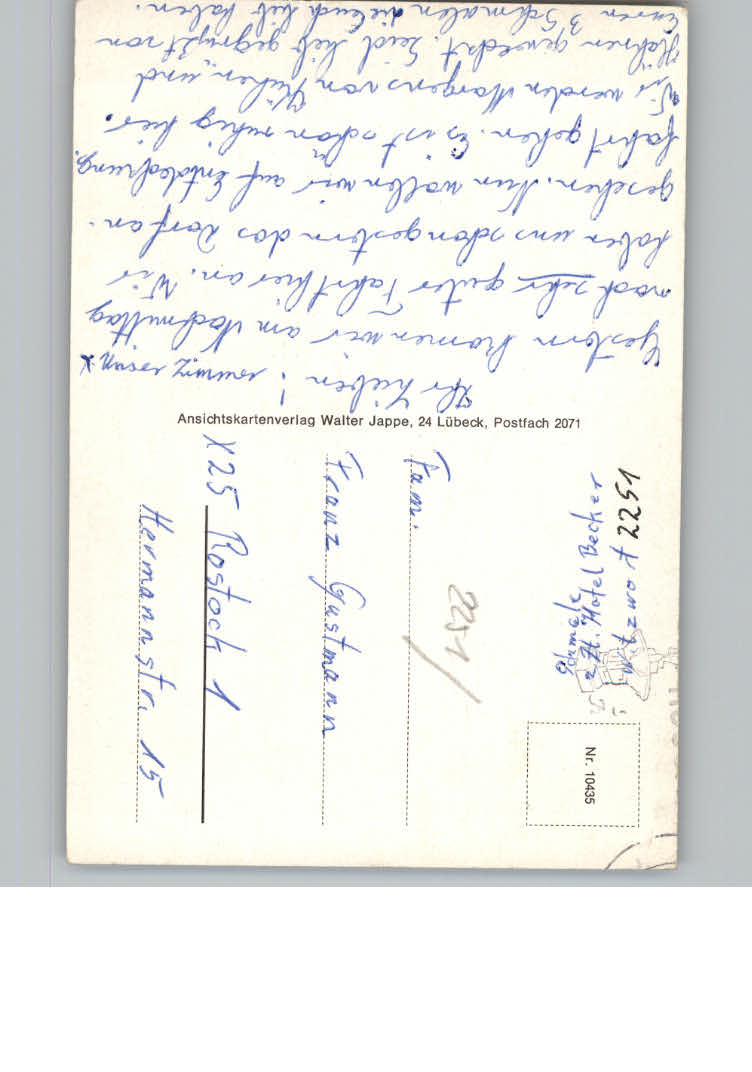 Ihr Lieben! 
Gestern kamen wir am Nachmittag
nach sehr guter Fahrt hier an. Wir
haben uns schon gestern das Dorf an-
gesehen. Nun wollen wir auf Entdeckungs
fahrt gehen. Es ist schön ruhig hier.
Wir werden Morgens von Kühen, und
Hähnen geweckt. Seid lieb gegrüßt von
Euren 3 Schmalen die Euch lieb haben.
Ansichtskartenverlag Walter Jappe, 24 Lübeck, Postfach 2071
Schmale
z.Zt. Hotel Becker
Witzwort 2251
Nr. 10435
2251/
Fam.
Franz Gustmann
X25 Rostock 1
Hermannstr. 15